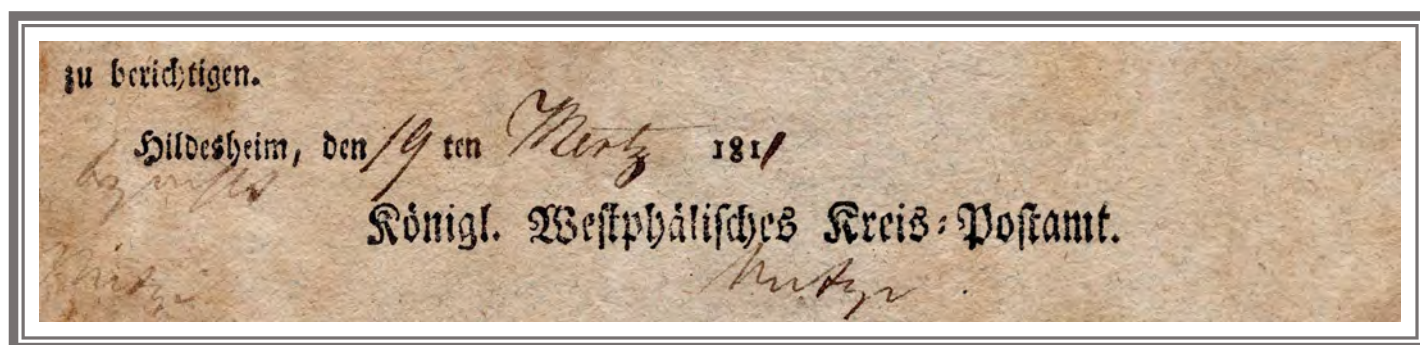 zu berichtigen.
Hildesheim, den 19 ten Mertz 1811
Königl. Westphälisches Kreis-Postamt.